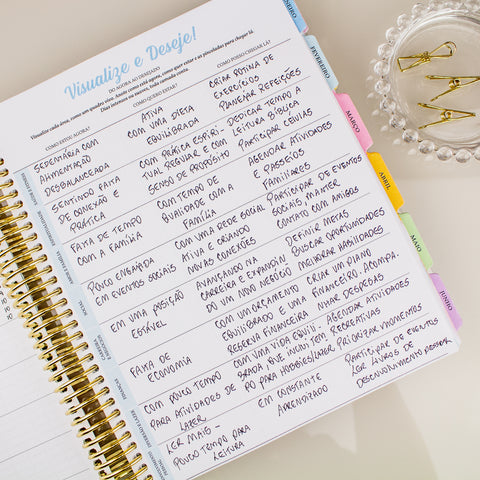 Visualize e Deseje!
DO AGORA AO DESEJADO
Visualize cada área, como um quadro vivo. Anote como está agora, como quer estar e as pinceladas para chegar lá.
Dias intensos ou suaves, tudo
COMO ESTOU AGORA?
COMO QUERO ESTAR?
COMO POSSO CHEGAR LÁ?
SEDENTÁRIA COM
ALIMENTAÇÃO
DESBALANCEADA
ATIVA
COM UMA DIETA
EQUILIBRADA
CRIAR ROTINA DE
EXERCÍCIOS
PLANEJAR REFEIÇÕES
SENTINDO FALTA
DE CONEXÃO E
PRÁTICA
COM PRÁTICA ESPIRI-
TUAL REGULAR E COM
SENSO DE PROPÓSITO
DEDICAR TEMPO A
LEITURA BÍBLICA
PARTICIPAR CÉLULAS
FALTA DE TEMPO
COM A FAMÍLIA
COM TEMPO DE
QUALIDADE COM A
FAMÍLIA
AGENDAR ATIVIDADES
E PASSEIOS
FAMILIARES
POUCO ENGAJADA
EM EVENTOS SOCIAIS
COM UMA REDE SOCIAL
ATIVA E CRIANDO
NOVAS CONEXÕES
PARTICIPAR DE EVENTOS
SOCIAIS, MANTER
CONTATO COM AMIGOS
EM UMA POSIÇÃO
ESTÁVEL
AVANÇANDO NA
CARREIRA E EXPANDIN
DO UM NOVO NEGÓCIO
DEFINIR METAS
BUSCAR OPORTUNIDADES
MELHORAR HABILIDADES
FALTA DE
ECONOMIA
COM UM ORÇAMENTO
EQUILIBRADO E UMA
RESERVA FINANCEIRA
CRIAR UM PLANO
FINANCEIRO, ACOMPA.
NHAR DESPESAS
COM POUCO TEMPO
PARA ATIVIDADES DE
LAZER
COM UMA VIDA EQUILI-
BRADA, QUE INCLUI TEM
PO PARA HOBBIES/LAZER
AGENDAR ATIVIDADES
RECREATIVAS
PRIORIZAR MOMENTOS
LER MAIS -
POUCO TEMPO PARA
LEITURA
EM CONSTANTE
APRENDIZADO
PARTICIPAR DE EVENTOS
LER LIVROS DE
FEVEREIRO
MARÇO
ABRIL
MAIO
JUNHO